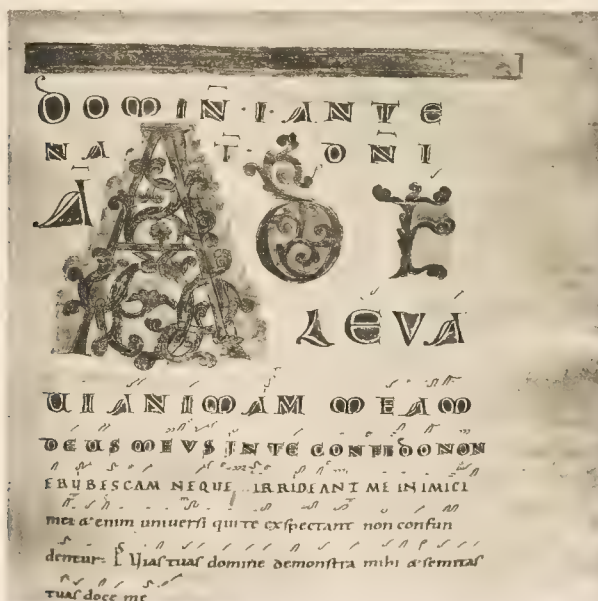 DOMIN̄·I·ANTE
NAT̄·DN̄I
Ā AD TE
LEVA
UI ANIMAM MEAM
DEUS MEVS IN TE CONFIDO NON
ERUBESCAM NEQUE IRRIDEANT ME INIMICI
mei & enim universi qui te exspectant non confun
dentur. Vias tuas domine demonstra mihi & semitas
tuas doce me